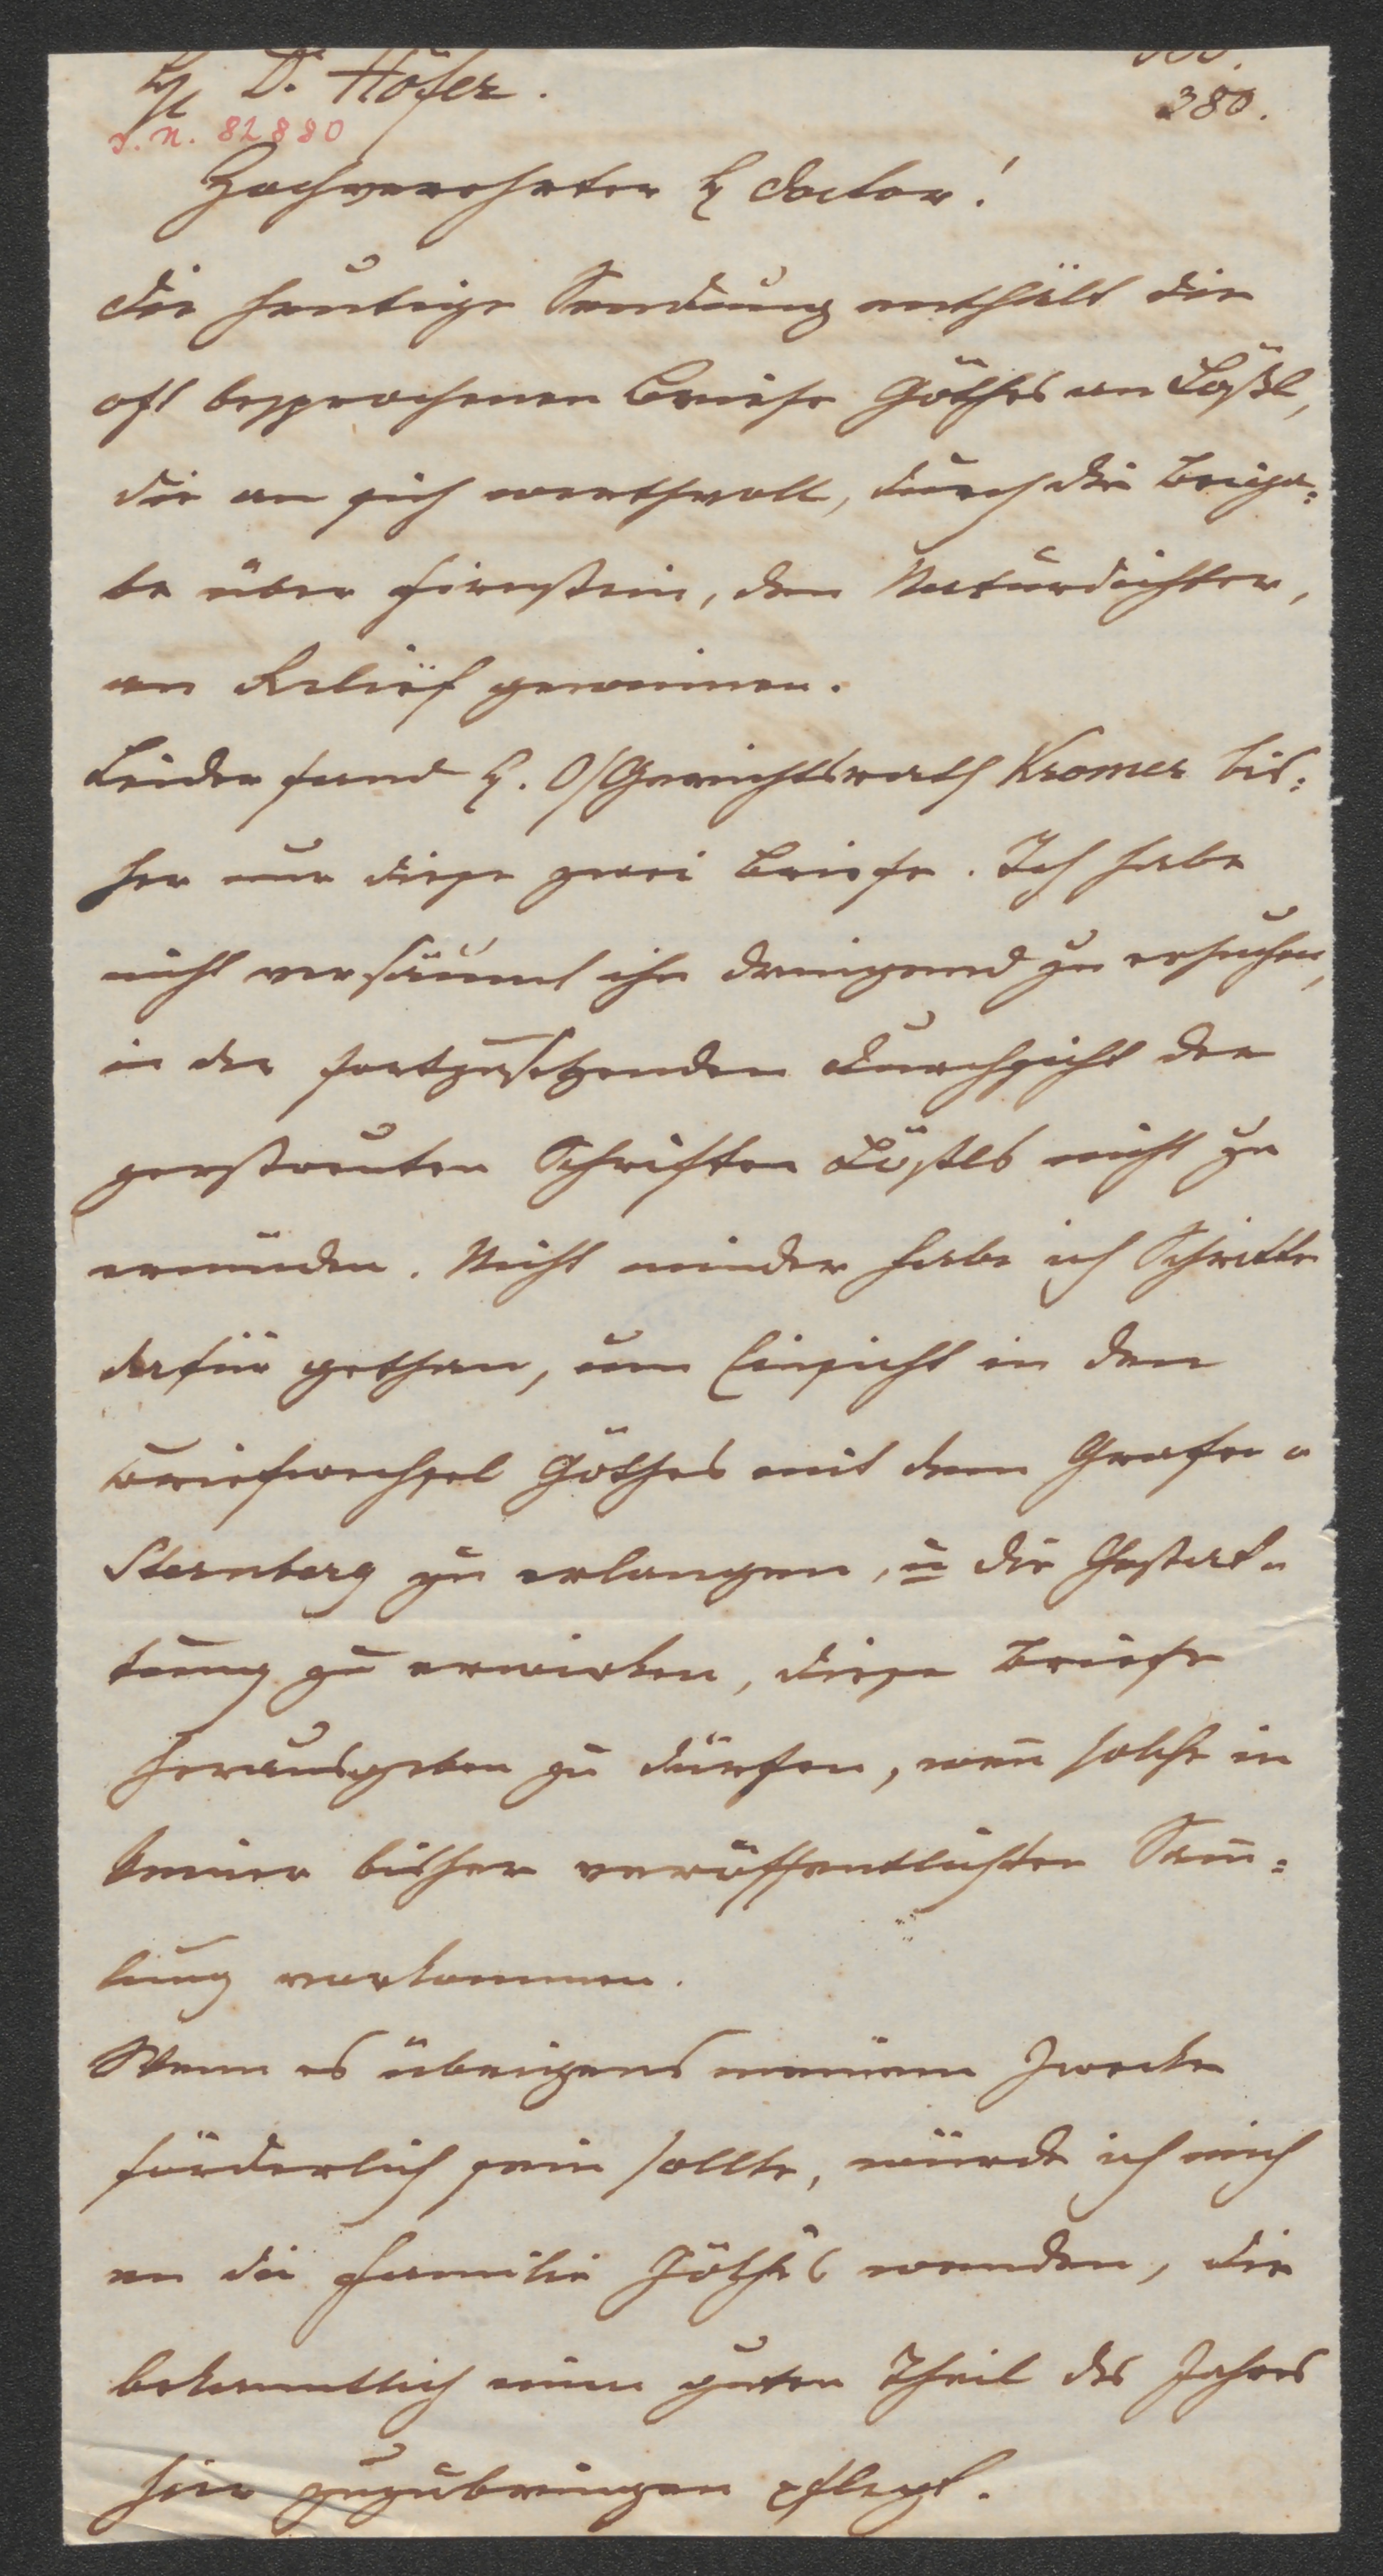 H D. Höfer.
380.
I. N. 82880
Hochverehrter H Doctor!
Die heutige Sendung enthält die
oft besprochenen Briefe Göthes an Lößl,
die an sich werthvoll, durch die Beiga=
be über Firnstein, den Naturdichter,
an Relief gewinnen.
Leider fand H. O/Gerichtsrath Kromer bis=
her nur diese zwei Briefe. Ich habe
nicht versäumt ihn dringend zu ersuchen,
in der fortzusetzenden Durchsicht der
zerstreuten Schriften Lößls nicht zu
ermüden. Nicht minder habe ich Schritte
dafür gethan, um Einsicht in den
Briefwechsel Göthes mit dem Grafen
Sternberg zu erlangen, u die Gestat=
tung zu erwirken, diese Briefe
herausgeben zu dürfen, wen̄ solche in
keiner bisher veröffentlichten Sam̄=
lung vorkommen.
Wenn es übrigens meinem Zwecke
förderlich sein sollte, würde ich mich
an die Familie Göthes wenden, die
bekanntlich einen guten Theil des Jahres
hier zuzubringen pflegt.